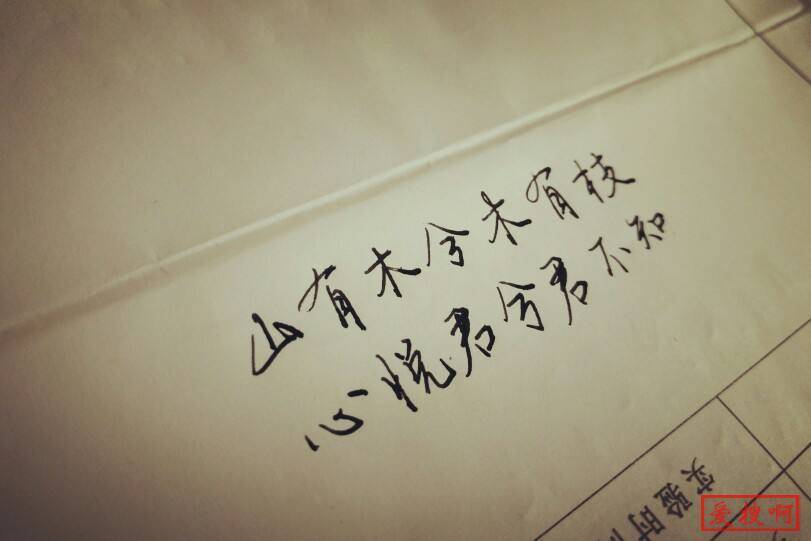 山有木兮木有枝
心悦君兮君不知
实验时
爱搜啊